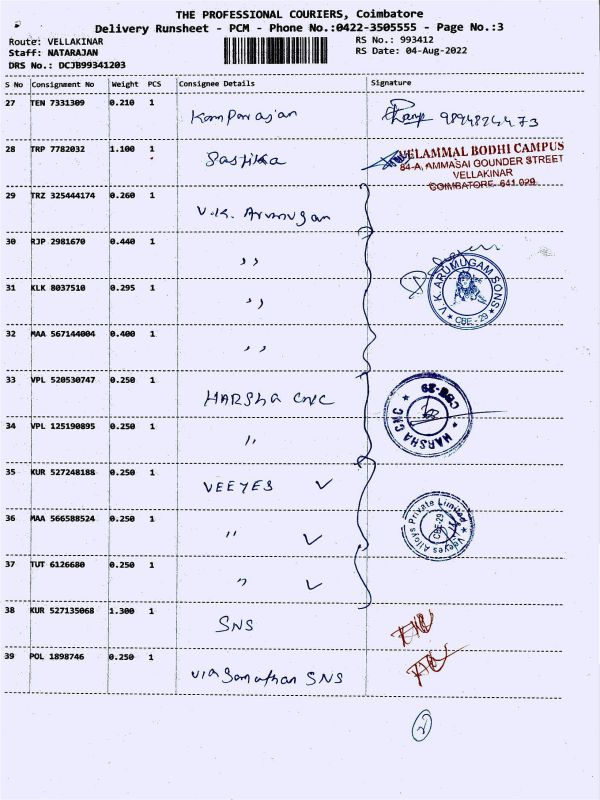 THE PROFESSIONAL COURIERS, Coimbatore
Delivery Runsheet - PCM - Phone No.:0422-3505555 - Page No.:3
Route: VELLAKINAR
RS No.: 993412
Staff: NATARAJAN
RS Date: 04-Aug-2022
DRS No.: DCJB99341203
S No Consignment No Weight PCS Consignee Details Signature
27 TEN 7331309 0.210 1 9894824473
28 TRP 7782032 1.100 1 Sastika
VELAMMAL BODHI CAMPUS
84-A, AMMASAI GOUNDER STREET
VELLAKINAR
COIMBATORE - 641 029
29 TRZ 325444174 0.260 1 V.K. Arumugan
30 RJP 2981670 0.440 1 ,,
31 KLK 8037510 0.295 1 ,,
V.K. ARUMUGAM SONS
CBE - 29
32 MAA 567144004 0.400 1 ,,
33 VPL 520530747 0.250 1 HARSha CNC
HARSHA CNC
CBE-29
34 VPL 125190895 0.250 1 "
35 KUR 527248188 0.250 1 VEEYES ✓
36 MAA 566588524 0.250 1 " ✓
Veeyes Alloys Private Limited
CBE-29
37 TUT 6126680 0.250 1 " ✓
38 KUR 527135068 1.300 1 SNS
39 POL 1898746 0.250 1 SNS